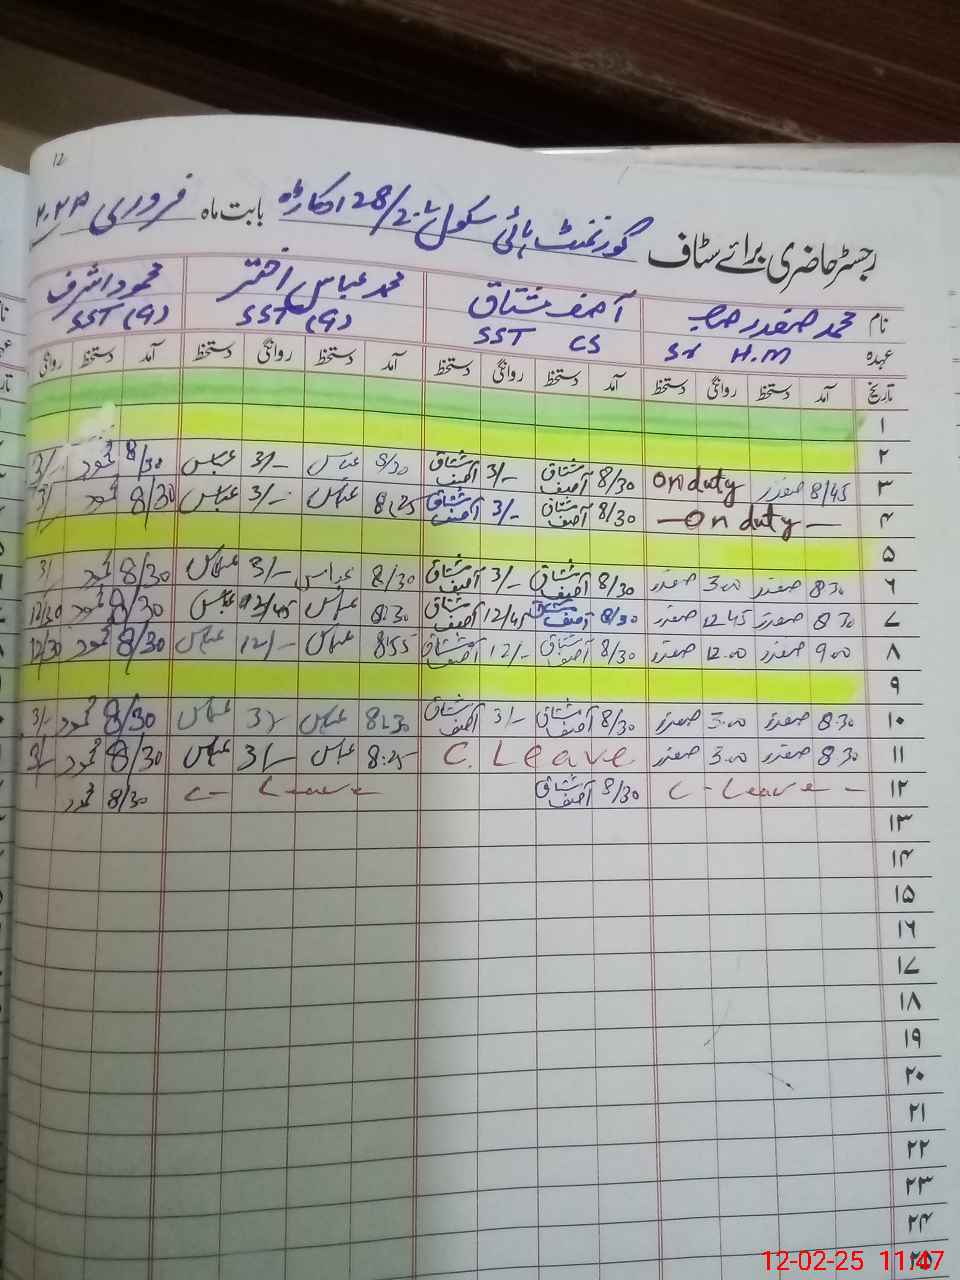 12
رجسٹر حاضری برائے سٹاف گورنمنٹ ہائی سکول 28/2.L اوکاڑہ بابت ماہ فروری
نام محمد صفدر صاحب آصف مشتاق محمد عباس اختر محمود اشرف
عہدہ Sr H.M SST CS SST (9) SST (9)
تاریخ آمد دستخط روانگی دستخط آمد دستخط روانگی دستخط آمد دستخط روانگی دستخط آمد دستخط روانگی
۱
۲
۳ 8/45 صفدر on duty 8/30 آصف مشتاق 3/- آصف مشتاق 8/30 عباس 3/- عباس 8/30 محمود 3/-
۴ — on duty — 8/30 آصف مشتاق 3/- آصف مشتاق 8:25 عباس 3/- عباس 8/30 محمود 3/-
۵
۶ 8 30 صفدر 3.00 صفدر 8/30 آصف مشتاق 3/- آصف مشتاق 8/30 عباس 3/- عباس 8/30 محمود 3/
۷ 8 30 صفدر 12 45 صفدر 8/30 آصف مشتاق 12/45 آصف مشتاق 8:30 عباس 12/45 عباس 8/30 محمود 12/30
۸ 9 00 صفدر 12.00 صفدر 8/30 آصف مشتاق 12/- آصف مشتاق 8:55 عباس 12/- عباس 8/30 محمود 12/30
۹
۱۰ 8 30 صفدر 3.00 صفدر 8/30 آصف مشتاق 3/- آصف مشتاق 8:30 عباس 3/- عباس 8/30 محمود 3/-
۱۱ 8 30 صفدر 3.00 صفدر C. Leave 8:25 عباس 3/- عباس 8/30 محمود 3/-
۱۲ C - Leave - 8/30 آصف مشتاق C - Leave 8/30 محمود
۱۳
۱۴
۱۵
۱۶
۱۷
۱۸
۱۹
۲۰
۲۱
۲۲
۲۳
۲۴
۲۵
12-02-25 11:47